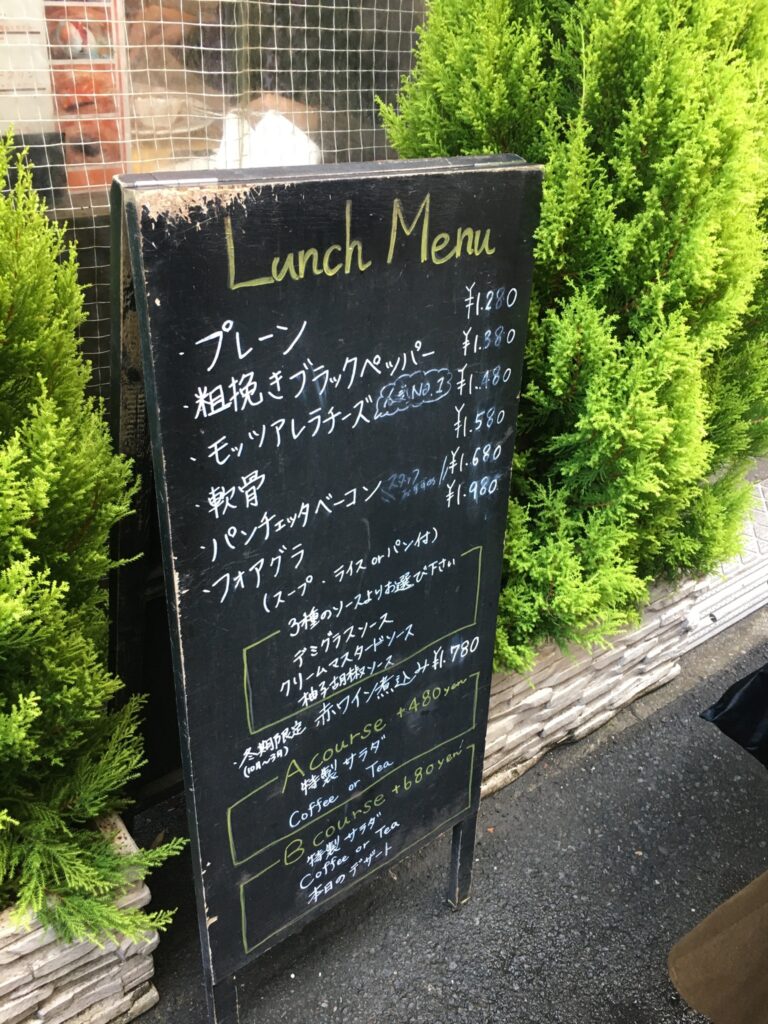 Lunch Menu
・プレーン ¥1.280
・粗挽きブラックペッパー ¥1.380
・モッツアレラチーズ 人気No.1 ¥1.480
・軟骨 ¥1.580
・パンチェッタベーコン スタッフおすすめ!! ¥1.680
・フォアグラ ¥1.980
(スープ・ライスorパン付)
3種のソースよりお選び下さい
デミグラスソース
クリームマスタードソース
柚子胡椒ソース
・冬期限定 赤ワイン煮込み ¥1.780
(10月〜3月)
A course +480yen
特製サラダ
Coffee or Tea
B course +680yen
特製サラダ
Coffee or Tea
本日のデザート